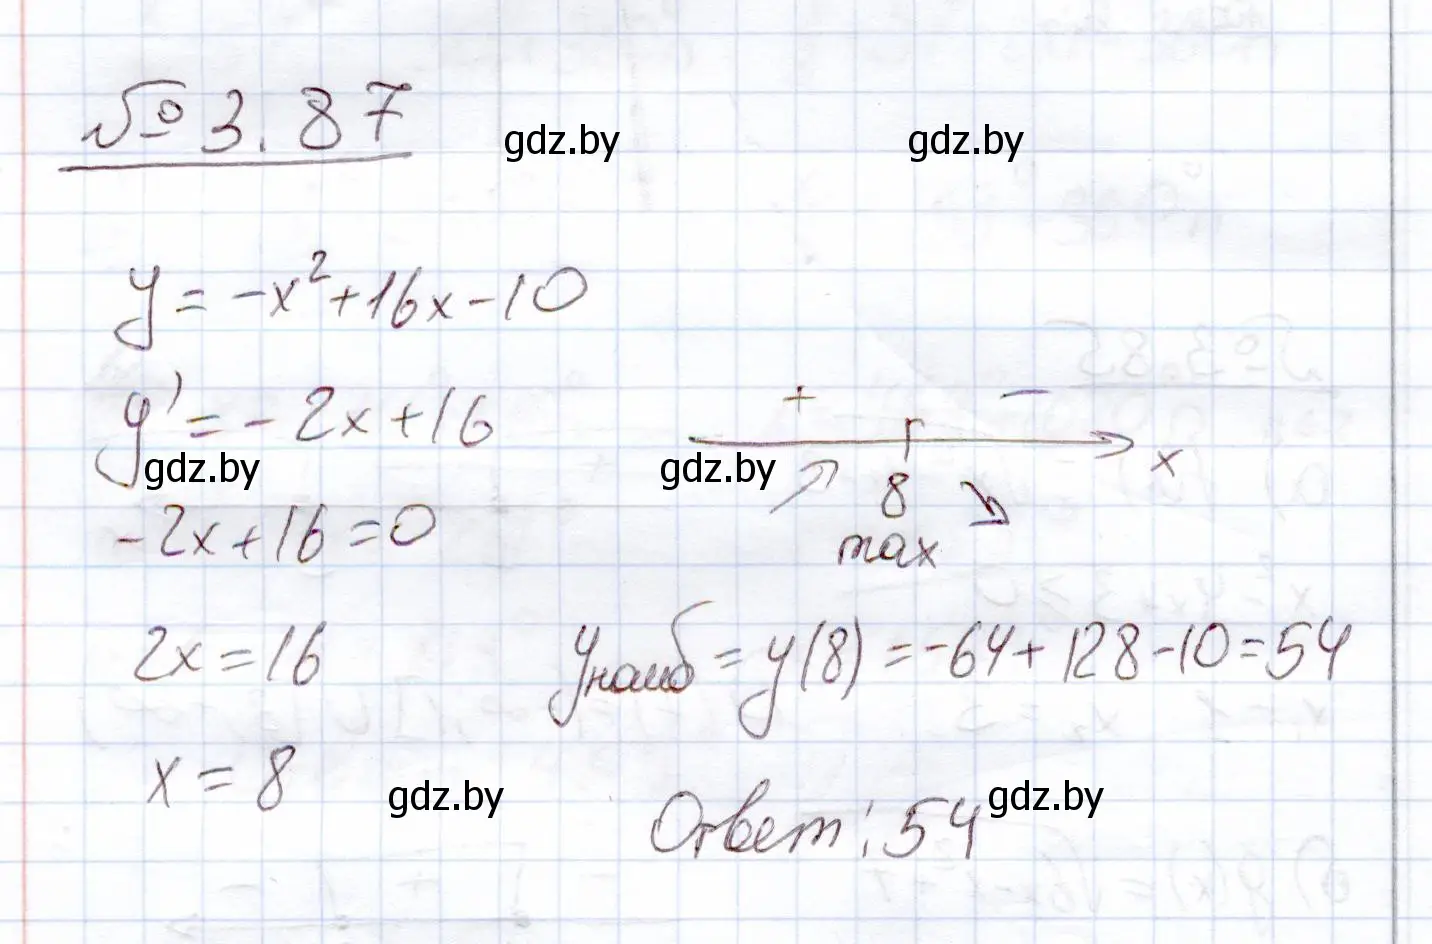 № 3.87
gdz.by gdz.by
y = -x² + 16x - 10
y' = -2x + 16
+ -
gdz.by gdz.by x
8
max
-2x + 16 = 0
2x = 16
yнаиб = y(8) = -64 + 128 - 10 = 54
x = 8
gdz.by gdz.by
Ответ: 54